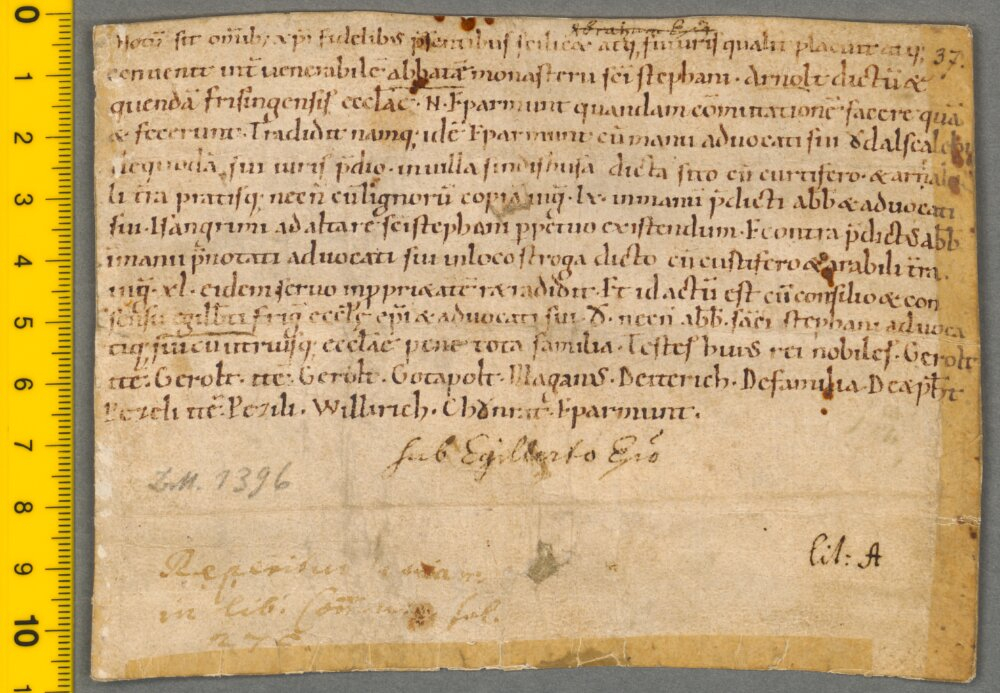 Abraham Epō
Notū sit omīb; xp̄i fidelibus p̄sentibus scilicet atq; futuris qualit placuit atq; 37.
convenit int̄ venerabilē abbatē monasterii sc̄i stephani · Arnolt dictū &
quendā frisingensis eccłae · N · Eparmunt quandam cōmutationē facere quā
& fecerunt · Tradidit namq; idē Eparmunt cū manu advocati sui Ŏdalscalchi
quoddā sui iuris p̄dio · in villa sindishusā dicta sito cū curtifero · & arabi
li t̄ra pratisq; necn̄ cū lignorū copia iug̃ · lx · in manū p̄dicti abb̄ & advocati
sui · Isangrimi ad altare sc̄i stephani ppetuo existendum · Econtra p̄dict̄ abb̄
imanū p̄notati advocati sui in loco stroga dicto cū curtifero & arabili t̄ra
iug̃ · xl · eidem servo in pprietatē tradidit · Et id actū est cū consilio & con
sensu egilb̄ti frig̃ eccłę ep̄i & advocati sui · O · necn̄ abb̄ · sc̄i stephani advoca
tiq; sui cū utriusq; eccłae pene tota familia · Testes huius rei nobiles · Gerolt
itē · Gerolt · itē · Gerolt · Gotapolt · Maganus · Detterich · De familia ·
Pezili itē · Pezili · Willirich · Chŏnrat · Eparmunt ·
sub Egilberto Epō
Z.M. 1396
lit: A
Reperitur etiam
in lib: fol.
275